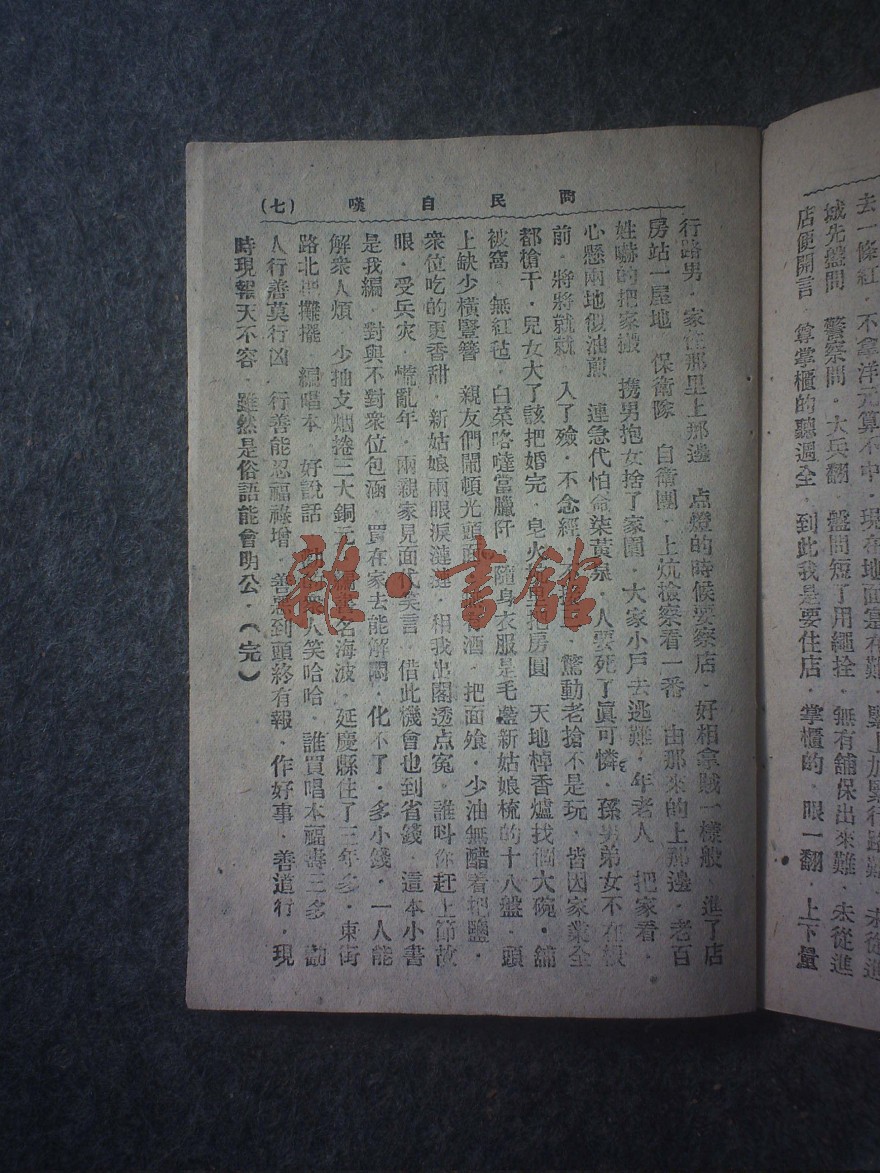 去一條紅．不拿洋元算不中．現在地面
城先盤問　警察問．大兵翻．盤問短了用繩拴．無有舖保出來難．未從進
店便開言　尊掌櫃的聽週全．到此我是要住店．掌櫃的．眼一翻．上下量
問民自嘆（七）
行路男．家住那里上那邊　点燈的時候要察店．好相拿賊一樣般．進了店
房站一屋地　保衛隊　自衛團．上炕檢察看一番　由那來的上那邊．老百
姓嚇的把家搬　携男抱女捨了家園．大家小戶去逃難．年老人　把家看．
心懸兩地似油煎　連急代怕命染黃泉．人要死了眞可憐．孫男弟女不在
前．將將就就．入了殮．不念經．驚動老搶不是玩．皆因家業全
都槍干．兒女大了該把婚完．皂火
房圓　天地棹香爐找個大碗．舖
被窩　無紅毡．白菜咯噠當臘阡　隨身衣服是毛藍新姑娘梳的十八盤．頭
上缺少橫豎簪　親友們閙頓光頭面
酒．把面飧．少油無醋着把鹽．
衆位吃的更香甜．新姑娘兩眼淚漣漣．相我出閣透点寃．誰呌你赶上節故
眼．受兵灾．慌亂年．兩親家見面代笑言．借此機會也到省錢．這本小書
是我編．對與不對衆位包涵．買在家去能解悶．化不了．多小錢．一人能
解衆人煩　少抽支烟捲三大銅元
名海波．延慶縣住了三年多．東街
路北把攤擺　編唱本．好說話
人笑哈哈．誰買唱本福壽三多　勸
人行善莫行凶．行善能忍福祿增．善惡到頭終有報．作好事．善道行．現
時現報天不容．雖然是俗語能會明公．（完）
雜·書館